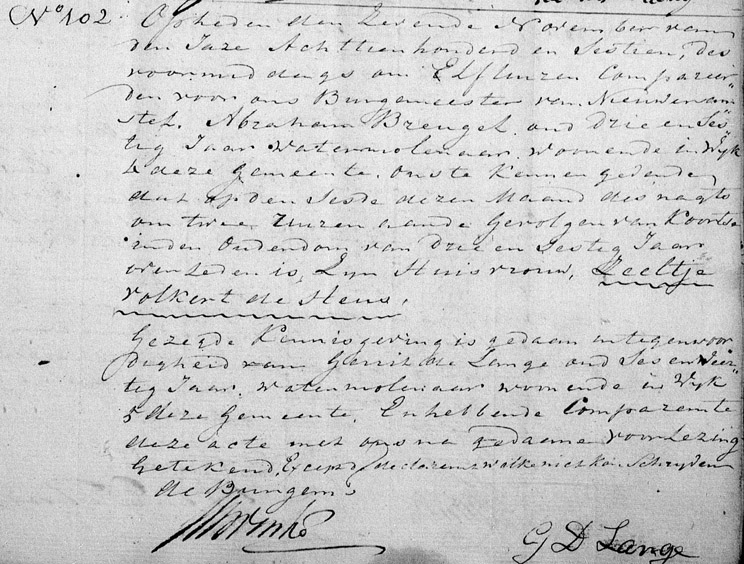 N° 102 Op heden den Zevende November van
den Jare Achttienhonderd en Sestien, des
voormiddags om Elf Uuren Compareer„
den voor ons Burgemeester van Nieuweram
stel. Abraham Breugel oud Drie en Ses„
tig Jaar Watermolenaar woonende in Wyk
deze Gemeente ons te kennen gevende
dat op den Sesde dezer Maand des nagts
om twee Uuren aan de Gevolgen van Koortse
in den Ouderdom van Drie en Sestig Jaar
overleden is, Zyn Huisvrouw, Neeltje
Volkert de Heus,
Gezegde Kennisgeving is gedaan in tegenwoor
digheid van Gerrit de Lange oud Ses en Veer„
tig Jaar Watermolenaar woonende in Wyk
5 deze Gemeente, En hebbende Comparente
deze acte met ons na gedaane voorlezing
Getekend, Except de welke niet kon Schryven
de Burgem:
G D Lange